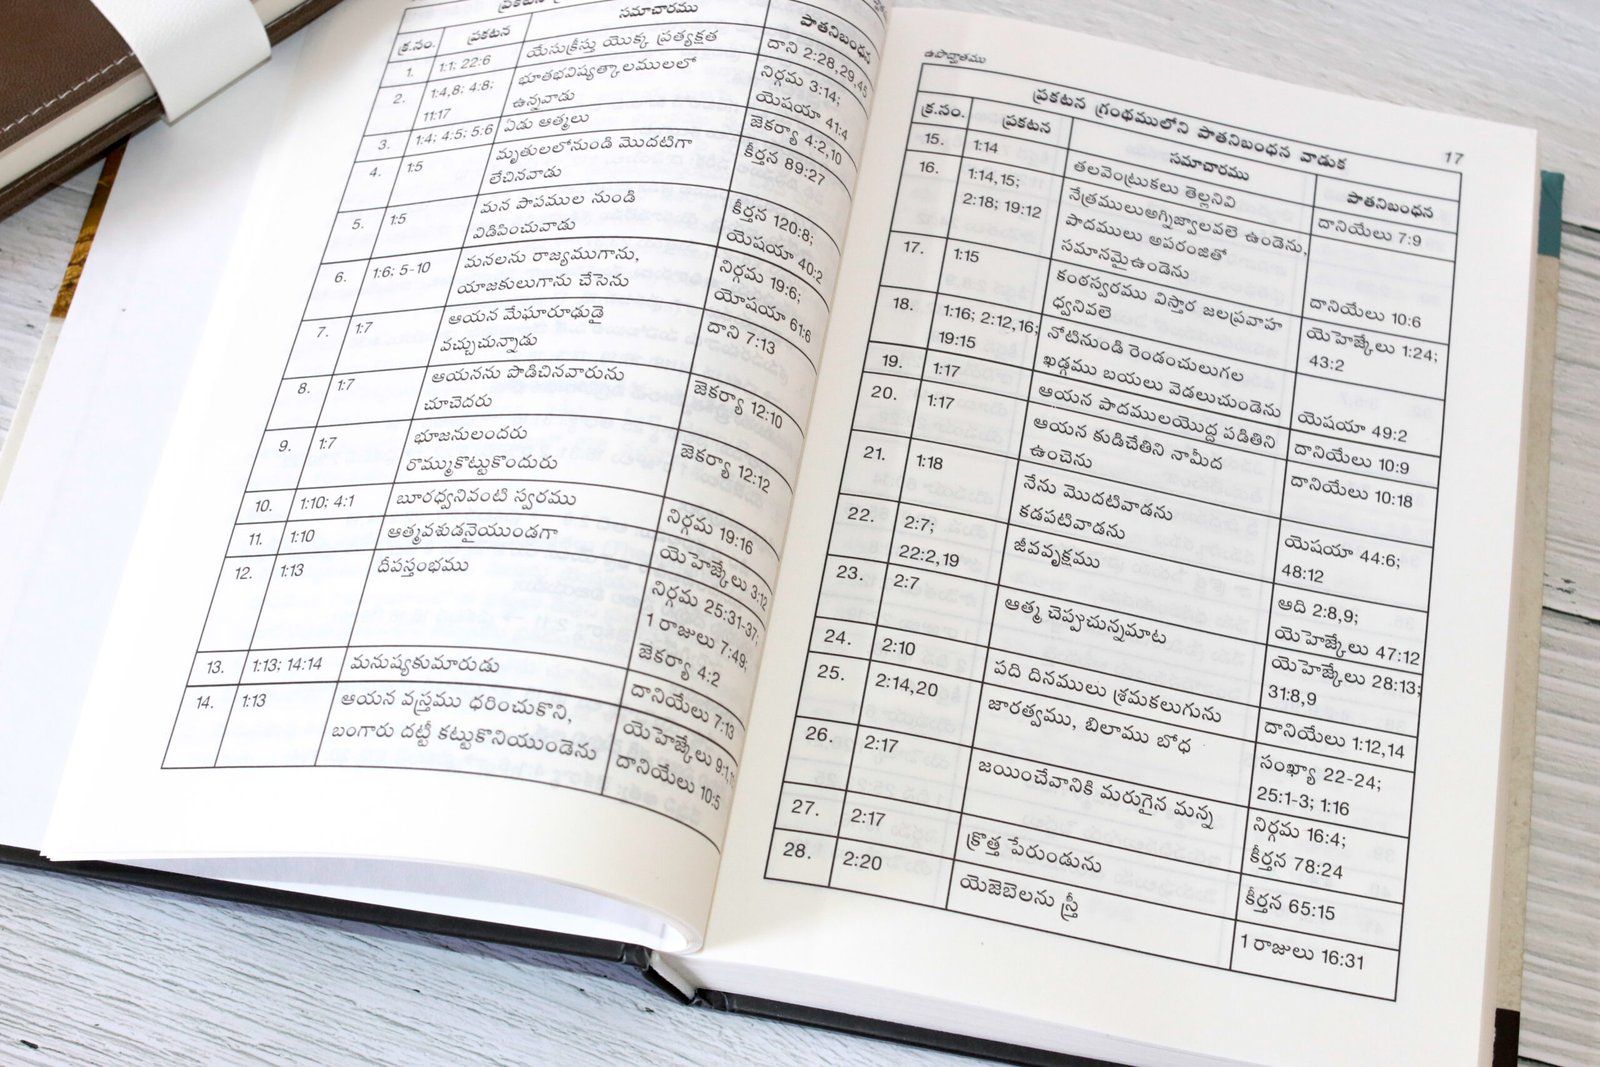 ప్రకటన
క్ర.సం. ప్రకటన సమాచారము పాతనిబంధన
1. 1:1; 22:6 యేసుక్రీస్తు యొక్క ప్రత్యక్షత దాని 2:28,29,45
2. 1:4,8; 4:8; భూతభవిష్యత్కాలములలో నిర్గమ 3:14;
11:17 ఉన్నవాడు యెషయా 41:4
3. 1:4; 4:5; 5:6 ఏడు ఆత్మలు జెకర్యా 4:2,10
4. 1:5 మృతులలోనుండి మొదటిగా కీర్తన 89:27
లేచినవాడు
5. 1:5 మన పాపముల నుండి కీర్తన 120:8;
విడిపించువాడు యెషయా 40:2
6. 1:6; 5-10 మనలను రాజ్యముగాను, నిర్గమ 19:6;
యాజకులుగాను చేసెను యోషయా 61:6
7. 1:7 ఆయన మేఘారూఢుడై దాని 7:13
వచ్చుచున్నాడు
8. 1:7 ఆయనను పొడిచినవారును జెకర్యా 12:10
చూచెదరు
9. 1:7 భూజనులందరు జెకర్యా 12:12
రొమ్ముకొట్టుకొందురు
10. 1:10; 4:1 బూరధ్వనివంటి స్వరము నిర్గమ 19:16
11. 1:10 ఆత్మవశుడనైయుండగా యెహెజ్కేలు 3:12
12. 1:13 దీపస్తంభము నిర్గమ 25:31-37;
1 రాజులు 7:49;
జెకర్యా 4:2
13. 1:13; 14:14 మనుష్యకుమారుడు దానియేలు 7:13
14. 1:13 ఆయన వస్త్రము ధరించుకొని, యెహెజ్కేలు 9:1,11
బంగారు దట్టీ కట్టుకొనియుండెను దానియేలు 10:5
ఉపోద్ఘాతము 17
ప్రకటన గ్రంథములోని పాతనిబంధన వాడుక
క్ర.సం. ప్రకటన సమాచారము పాతనిబంధన
15. 1:14 తలవెంట్రుకలు తెల్లనివి దానియేలు 7:9
16. 1:14,15; నేత్రములుఅగ్నిజ్వాలవలె ఉండెను,
2:18; 19:12 పాదములు అపరంజితో
సమానమైఉండెను దానియేలు 10:6
17. 1:15 కంఠస్వరము విస్తార జలప్రవాహ యెహెజ్కేలు 1:24;
ధ్వనివలె 43:2
18. 1:16; 2:12,16; నోటినుండి రెండంచులుగల
19:15 ఖడ్గము బయలు వెడలుచుండెను యెషయా 49:2
19. 1:17 ఆయన పాదములయొద్ద పడితిని దానియేలు 10:9
20. 1:17 ఆయన కుడిచేతిని నామీద దానియేలు 10:18
ఉంచెను
21. 1:18 నేను మొదటివాడను యెషయా 44:6;
కడపటివాడను 48:12
22. 2:7; జీవవృక్షము ఆది 2:8,9;
22:2,19 యెహెజ్కేలు 47:12
23. 2:7 ఆత్మ చెప్పుచున్నమాట యెహెజ్కేలు 28:13;
31:8,9
24. 2:10 పది దినములు శ్రమకలుగును దానియేలు 1:12,14
25. 2:14,20 జారత్వము, బిలాము బోధ సంఖ్యా 22-24;
25:1-3; 1:16
26. 2:17 జయించేవానికి మరుగైన మన్న నిర్గమ 16:4;
కీర్తన 78:24
27. 2:17 క్రొత్త పేరుండును కీర్తన 65:15
28. 2:20 యెజెబెలను స్త్రీ 1 రాజులు 16:31